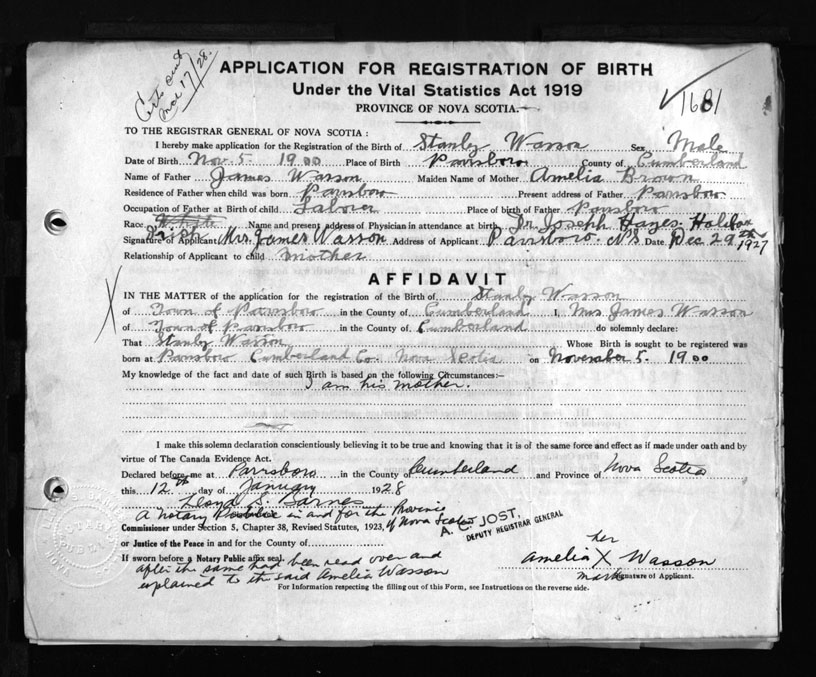 Certs sent
Mar 17/28.
APPLICATION FOR REGISTRATION OF BIRTH
Under the Vital Statistics Act 1919
PROVINCE OF NOVA SCOTIA.
1681
TO THE REGISTRAR GENERAL OF NOVA SCOTIA :
I hereby make application for the Registration of the Birth of Stanley Wasson Sex Male
Date of Birth Nov 5 1900 Place of Birth Parrsboro County of Cumberland
Name of Father James Wasson Maiden Name of Mother Amelia Brown
Residence of Father when child was born Parrsboro Present address of Father Parrsboro
Occupation of Father at Birth of child Laborer Place of birth of Father Parrsboro
Race White Name and present address of Physician in attendance at birth Dr Joseph Hayes Halifax
Irish
Signature of Applicant Mrs. James Wasson Address of Applicant Parrsboro N.S. Date Dec 29th 1927
Relationship of Applicant to child mother
AFFIDAVIT
IN THE MATTER of the application for the registration of the Birth of Stanley Wasson
of Town of Parrsboro in the County of Cumberland I, Mrs James Wasson
of Town of Parrsboro in the County of Cumberland do solemnly declare:
That Stanley Wasson Whose Birth is sought to be registered was
born at Parrsboro Cumberland Co. Nova Scotia on November 5. 1900
My knowledge of the fact and date of such Birth is based on the following Circumstances:—
I am his mother.
I make this solemn declaration conscientiously believing it to be true and knowing that it is of the same force and effect as if made under oath and by
virtue of The Canada Evidence Act.
Declared before me at Parrsboro in the County of Cumberland and Province of Nova Scotia
this 12th day of January 1928
Lloyd S. Barnes
A notary Public in and for the Province
of Nova Scotia
Commissioner under Section 5, Chapter 38, Revised Statutes, 1923,
A. C. JOST,
DEPUTY REGISTRAR GENERAL
or Justice of the Peace in and for the County of
If sworn before a Notary Public affix seal.
after the same had been read over and
explained to the said Amelia Wasson
her
Amelia X Wasson
mark
Signature of Applicant.
For Information respecting the filling out of this Form, see Instructions on the reverse side.